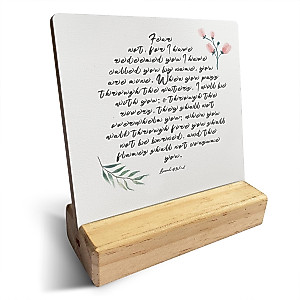 Fear
not, for I have
redeemed you I have
called you by name, you
are mine. When you pass
through the waters, I will be
with you; & through the
rivers, they shall not
overwhelm you; when you
walk through fire you shall
not be burned, and the
flames shall not consume
you.